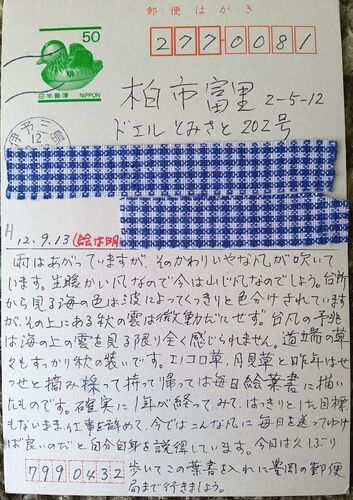 郵便はがき
50
日本郵便 NIPPON
277-0081
伊予三島
12
柏市富里 2-5-12
ドエルとみさと 202号
H12.9.13 (絵は明
雨はあがっていますが、そのかわりいやな風が吹いて
います。生暖かい風なので今は山じ風なのでしょう。台所
から見る海の色は波によってくっきりと色分けされています
が、その上にある秋の雲は微動だにせず。台風の予兆
は海の上の雲を見る限り全く感じられません。道端の草
々もすっかり秋の装いです。エノコロ草、月見草と昨年はせ
っせと摘み採って持って帰っては毎日絵葉書に描い
たものです。確実に1年が経ってみて、はっきりとした目標
もないまま仕事を辞めて、今ではこんな風に毎日を送ってゆけ
ば良いのだと自分自身を説得しています。今日は久しぶり
歩いてこの葉書を入れに豊岡の郵便
局まで行きましょう。
7990432